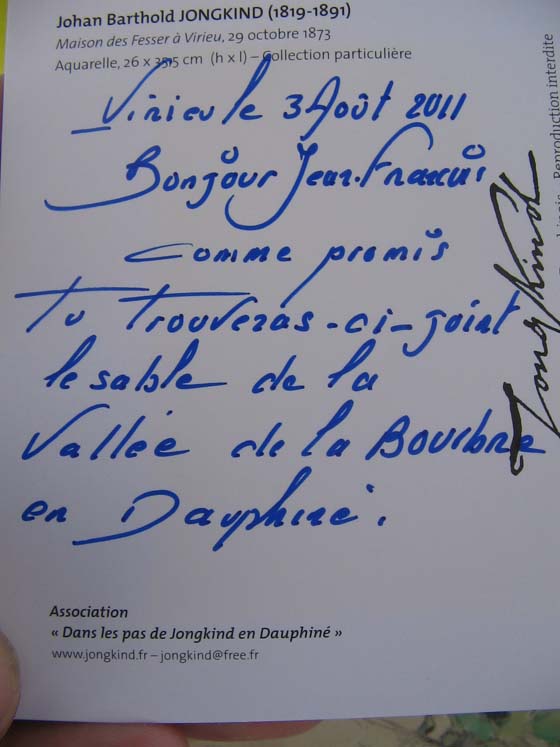 Johan Barthold JONGKIND (1819-1891)
Maison des Fesser à Virieu, 29 octobre 1873
Aquarelle, 26 x 35,5 cm (h x l) – Collection particulière
Virieu le 3 Août 2011
Bonjour Jean-François
Comme promis
Tu Trouveras-ci-joint
le sable de la
Vallée de la Bourbre
en Dauphiné.
Association
« Dans les pas de Jongkind en Dauphiné »
www.jongkind.fr – jongkind@free.fr
Jongkind
Reproduction interdite